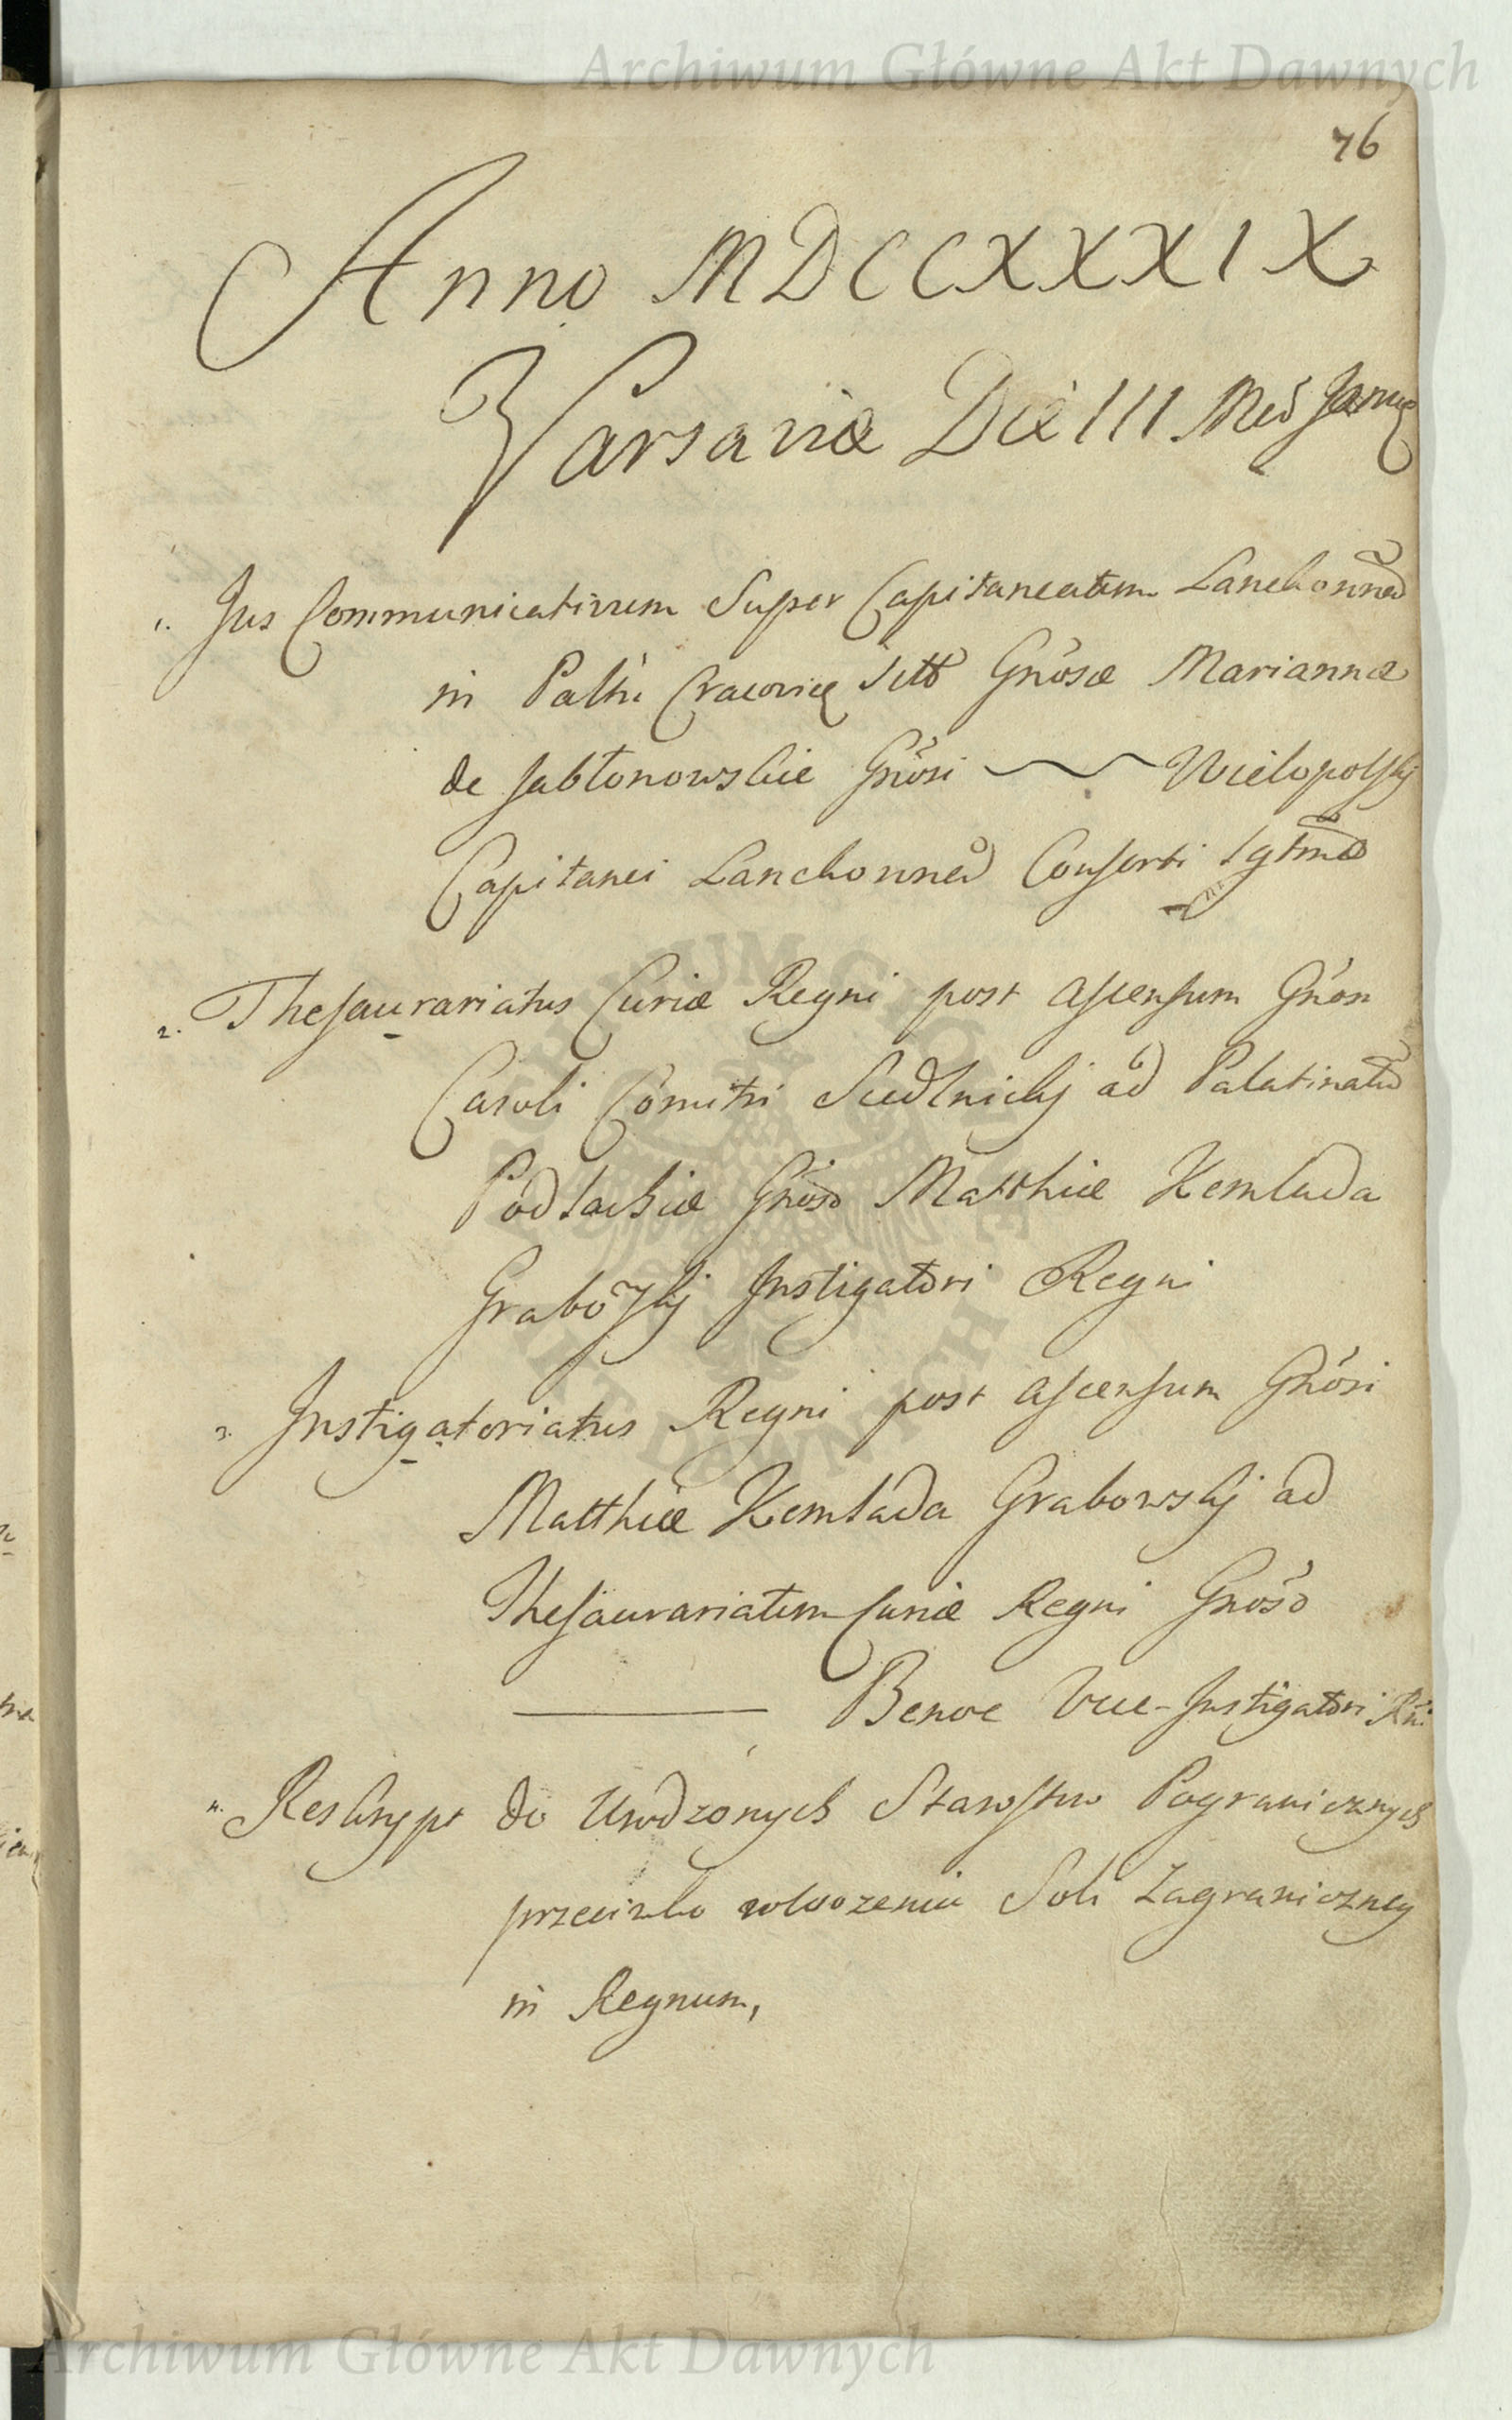 Archiwum Główne Akt Dawnych
76
Anno MDCCXXXIX
Varsaviæ Die III Mes Janu
1. Jus Communicativum Super Capitaneatum Lanckonnen
in Palni Cracovie Gnosæ Mariannæ
de Jabłonowskie Gnosi Wielopolskj
Capitanei Lanckonnen Consorti
2. Thesaurariatus Curiæ Regni post Ascensum Gnosi
Caroli Comitis Siedlnickj ad Palatinatū
Podlachiæ Gnoso Matthiæ Kemlada
Grabowskj Instigatori Regni
3. Instigatoriatus Regni post Ascensum Gnosi
Matthiæ Kemlada Grabowskj ad
Thesaurariatum Curiæ Regni Gnoso
Benoe Vice-Instigatori Rni
4. Reskrypt do Urodzonych Starostw Pogranicznych
przeciwko wwozeniu Soli Zagraniczney
in Regnum,
Archiwum Główne Akt Dawnych